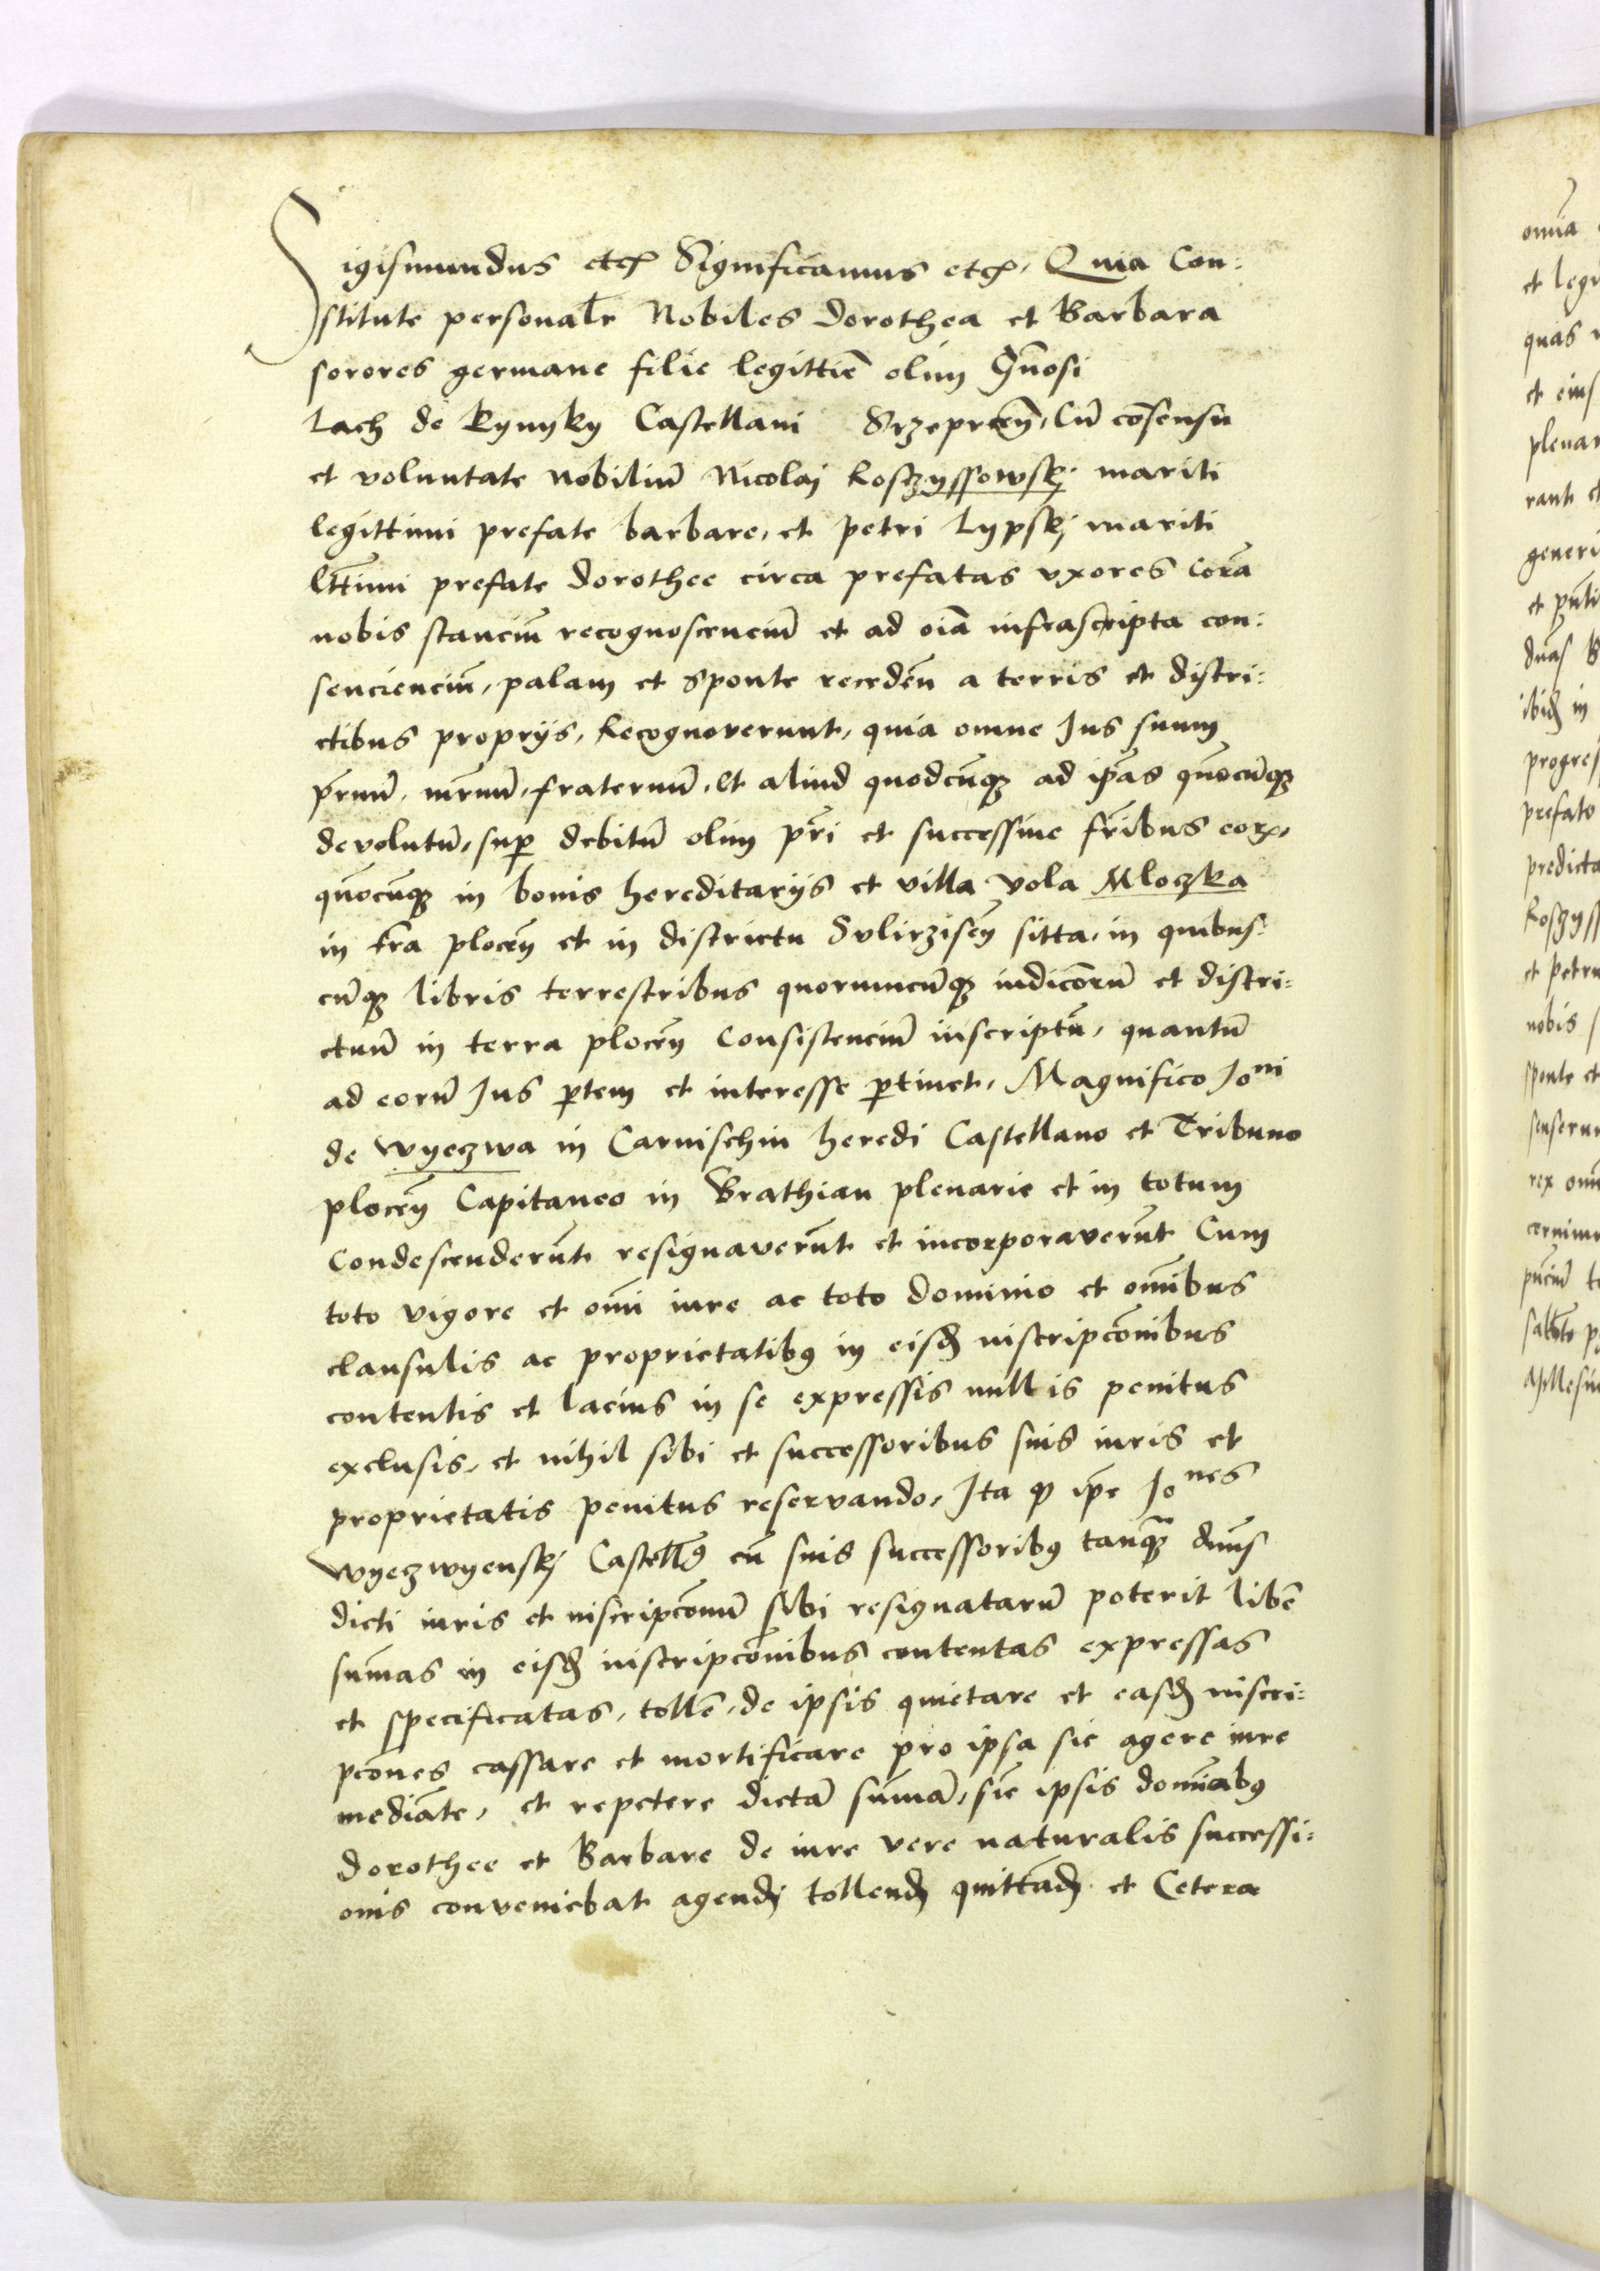 Sigismundus etc Significamus etc, Quia Con:
stitute personalr Nobiles Dorothea et Barbara
sorores germane filie legittie olim Gnosi
Lach de Rynyky Castellani Srzepreen, Cu cosensu
et voluntate nobiliu Nicolaj Kosczyssowskj mariti
legittimi prefate barbare, et petri Lypskj mariti
lttimi prefate Dorothee circa prefatas vxores cora
nobis stanciu recognoscenciu et ad oia infrascripta con:
senciencium, palam et sponte receden a terris et distri:
ctibus proprijs, Recognoverunt, quia omne Jus suum
prnu, mrnu, fraternu, et aliud quodcuq ad ipas quocuq
devolutu, sup debitu olim pri et successive fribus eor,
quocuq in bonis hereditarijs et villa vola Mloczka
in tra plocen et in districtu Svlirzisen sitta, in quibus:
cuq libris terrestribus quorumcuq iudicioru et distri:
ctuu in terra plocen Consistenciu inscriptu, quantu
ad eoru Jus ptem et interesse ptinet, Magnifico Joni
de wyeczwa in Carnischin heredi Castellano et Tribuno
plocen Capitaneo in Brathian plenarie et in totum
Condescenderut resignaverut et incorporaverut Cum
toto vigore et omi iure ac toto dominio et omibus
clausulis ac proprietatib in eisd inscripconibus
contentis et lacius in se expressis nullis penitus
exclusis, et nihil sibi et successoribus suis iuris et
proprietatis penitus reservando, Ita q ipe Jones
wyeczwyenskj Castell cu suis successorib tanq dnus
dicti iuris et inscripconu sibi resignataru poterit libe
sumas in eisd inscripconibus contentas expressas
et specificatas, tolle, de ipsis quietare et easd inscri:
pcones cassare et mortificare pro ipsa sic agere iure
mediate, et repetere dicta suma, sic ipsis dominab
Dorothee et Barbare de iure vere naturalis successi:
onis conveniebat agendj tollendj quittadj et Cetera